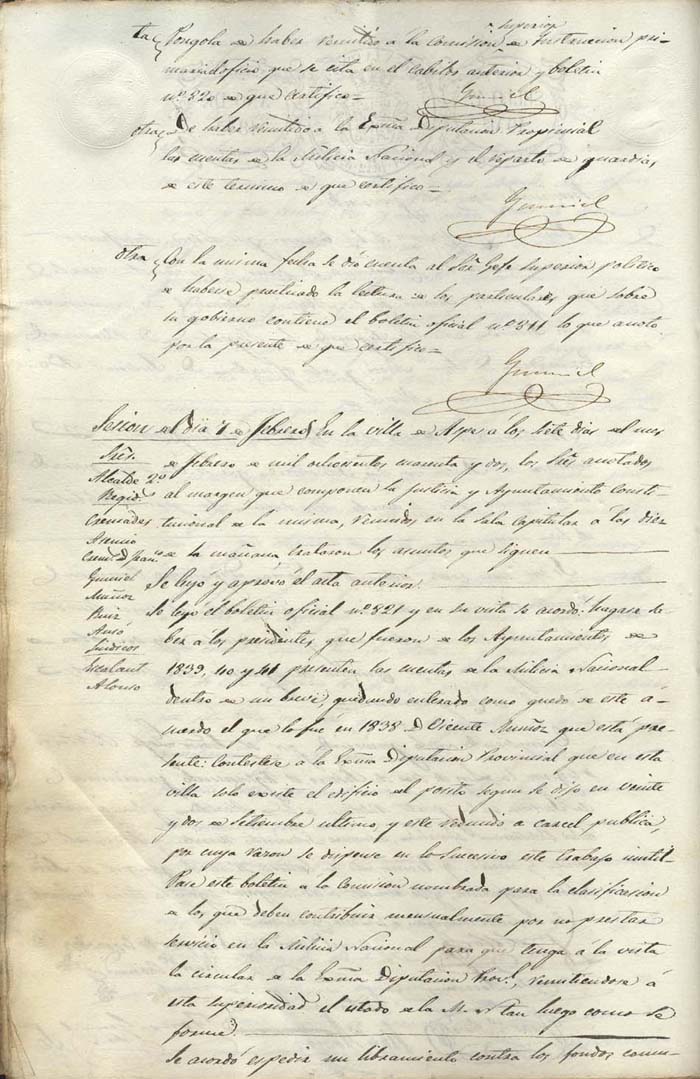 superior
ta Pongola de haber remitido a la Comision de Instruccion pri-
maria oficio que se cita en el Cabildo anterior y boletin
nº 820 de que certifico=
Gumiel
otra De haber remitido a la Exma Diputacion Provincial
las cuentas de la Milicia Nacional y el reparto de guardias
de este termino de que certifico=
Gumiel
otra Con la misma fecha se dio cuenta al Sor Gefe superior politico
de haberse practicado la lectura de los particulares que sobre
su gobierno contiene el boletin oficial nº 811 lo que anoto
por la presente de que certifico=
Gumiel
Sesion del dia 7 de febrero En la villa de Aspe á los siete dias del mes
de febrero de mil ochocientos cuarenta y dos, los Sres anotados
al margen que componen la Justicia y Ayuntamiento Consti-
tucional de la misma, reunidos en la Sala Capitular a las diez
de la mañana trataron los asuntos que siguen
Sres.
Alcalde 2º
Regid.
Cremades
Asencio
Gumiel
Muñoz
Ruiz
Ausó
Sindicos
Escalant
Alonso
Se leyó y aprovó el acta anterior.
Se leyó el boletin oficial nº 821 y en su vista se acordó: hagase sa-
ber á los presidentes que fueron de los Ayuntamientos de
1839, 40 y 41 presenten las cuentas de la Milicia Nacional
dentro de un breve, quedando enterado como quedo de este á-
cuerdo el que lo fué en 1838 D. Vicente Muñoz que está pre-
sente: Contestese a la Exma Diputacion Provincial que en esta
villa solo existe el edificio del posito segun se dijo en veinte
y dos de Setiembre ultimo, y este reducido a carcel publica,
por cuya razon se dispense en lo sucesivo este trabajo inutil.
Pase este boletin a la Comision nombrada para la clasificacion
de los que deben contribuir mensualmente por no prestar
servicio en la Milicia Nacional para que tenga á la vista
la circular de la Exma Diputacion Prov.l, remitiendose á
esta superioridad el estado de la M. N. tan luego como se
forme.
Se acordó espedir un libramiento contra los fondos comu-